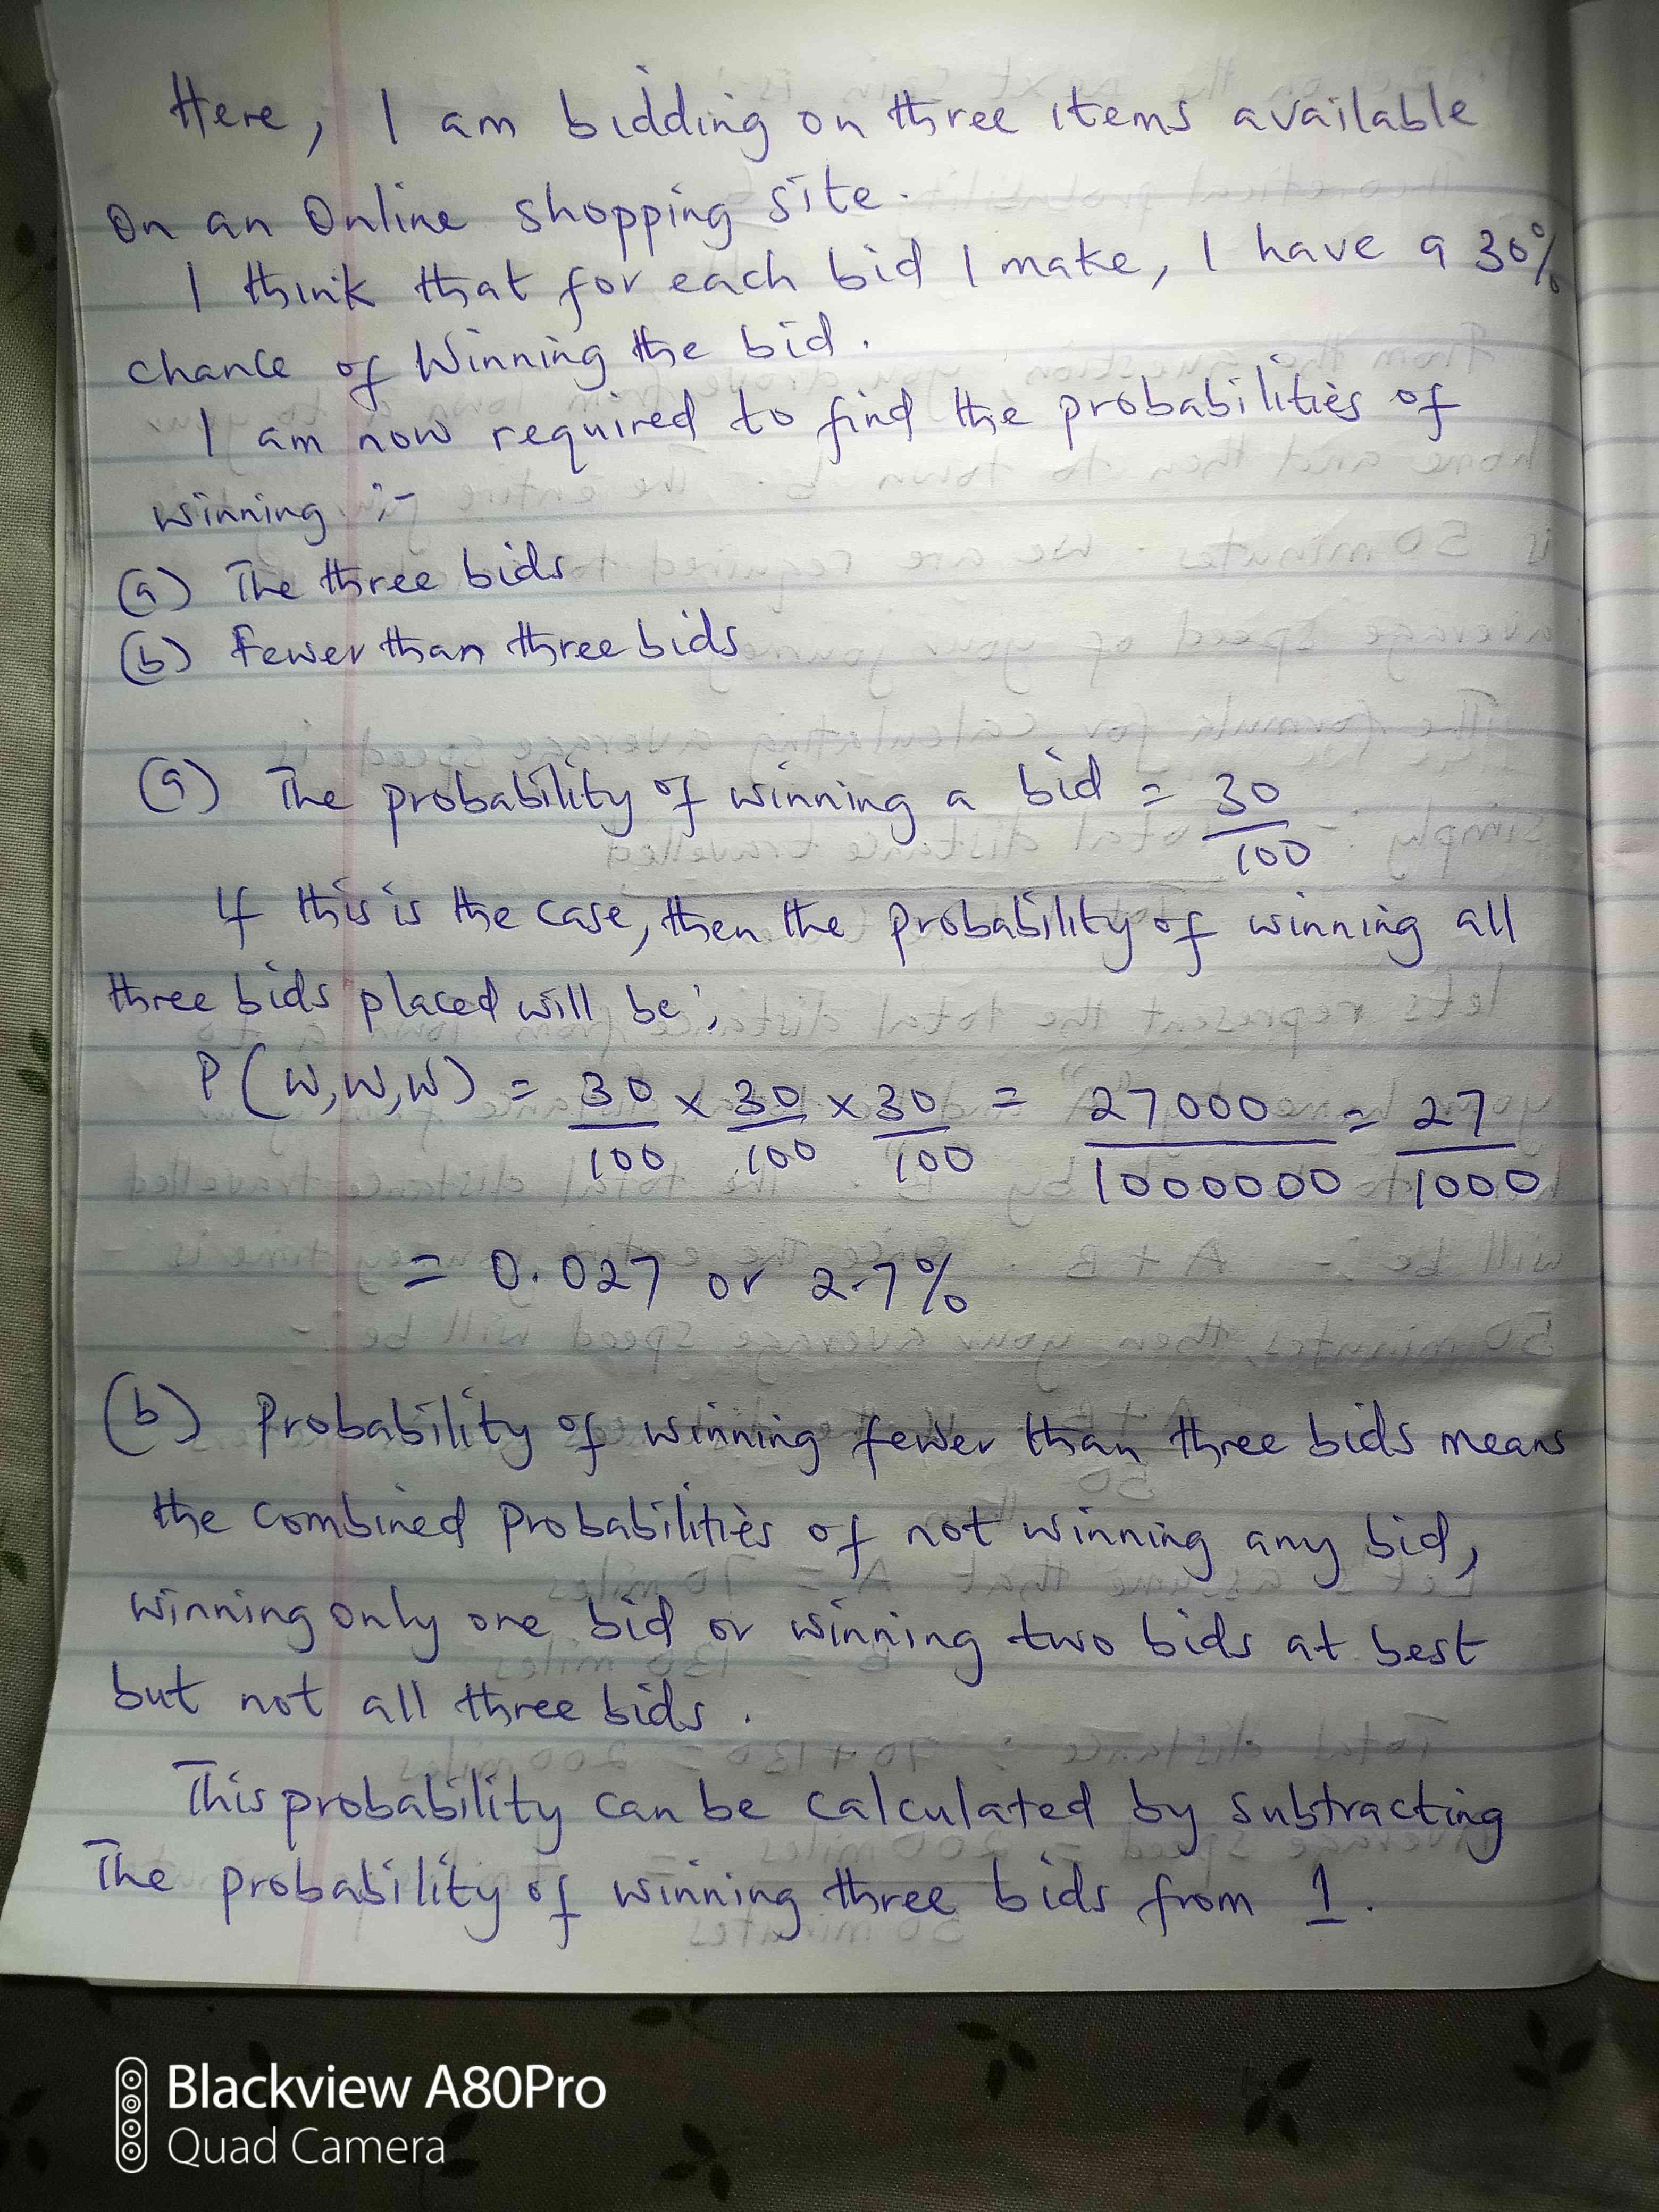 Here, I am bidding on three items available
on an Online shopping site.
I think that for each bid I make, I have a 30%
chance of Winning the bid.
I am now required to find the probabilities of
winning :-
(a) The three bids
(b) Fewer than three bids
(a) The probability of winning a bid = 30/100
If this is the case, then the probability of winning all
three bids placed will be;
P(W,W,W) = 30/100 x 30/100 x 30/100 = 27000/1000000 = 27/1000
= 0.027 or 2.7%
(b) Probability of winning fewer than three bids means
the combined probabilities of not winning any bid,
winning only one bid or winning two bids at best
but not all three bids.
This probability can be calculated by subtracting
The probability of winning three bids from 1.
Blackview A80Pro
Quad Camera